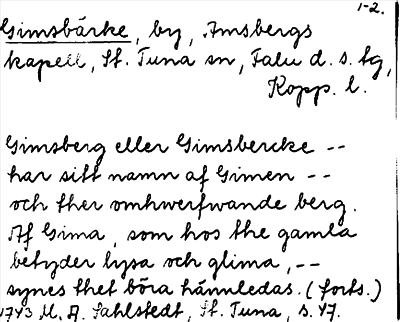 1-2.
Gimsbärke, by, Amsbergs
kapell, St. Tuna sn, Falu d. s. tg,
Kopp. l.
Gimsberg eller Gimsbercke --
har sitt namn af Gimen --
och ther omhwerfwande berg.
Af Gima, som hos the gamla
betyder lysa och glima, --
synes thet böra hännledas. (forts.)
1743 M. A. Sahlstedt, St. Tuna, s. 47.